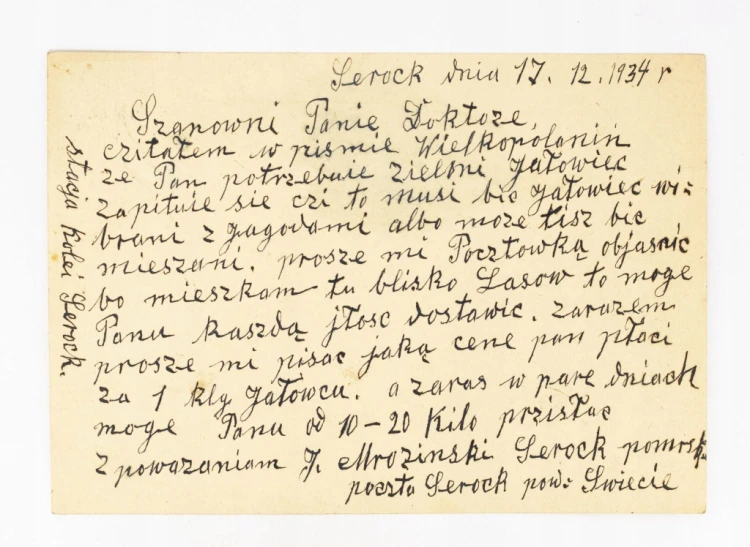 Serock dnia 17. 12. 1934 r
Szanowni Panie Doktoze,
czitałem w pismie Wielkopolanin
ze Pan potrzebuie zielmi jałowiec
zapituie sie czi to musi bic jałowiec wi=
brani z jagodami albo moze tisz bic
mieszani. prosze mi Pocztowką objasnic
bo mieszkam tu blisko Lasow to moge
Panu kaszdą jłosc dostawic. zarazem
prosze mi pisac jaką cene pan płaci
za 1 klg jałowcu. a zaras w parę dniach
moge Panu od 10-20 Kilo przisłac
z powązaniam J. Mrozinski Serock pomrsk
poczta Serock pow: Swiecie
stacja kolei Serock.